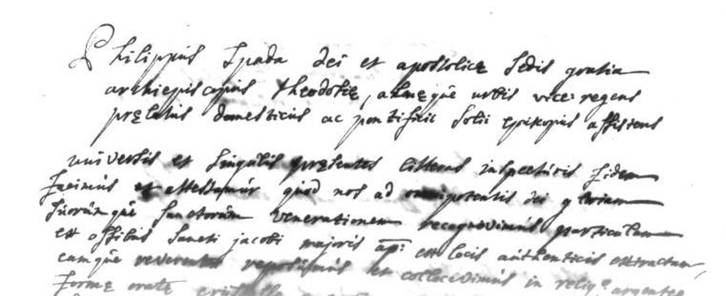 Philippus Spada dei et apostolicę Sedis gratia
archiepiscopus theodosię, almęque urbis vice-regens
pręlatus domesticus ac pontificii Solii episkopus assistens
universis et singulis pręsentes litteras inspecturis fidem
facimus et attestamur quod nos ad omnipotentis dei gloriam
suorumque sanctorum venerationem recognovimus particulam
ex ossibus Sancti jacobi majoris ex locis authenticis extractam,
eamque reverenter reposuimus et collocavimus in reliq.ᵒ argenteo
formę ovatę